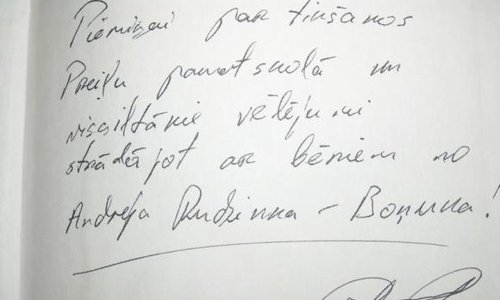 Piemiņai par tikšanos
Preiļu pamatskolā un
vissiltākie vēlējumi
strādājot ar bērniem no
Andreja Rudzinska - Boņuka!